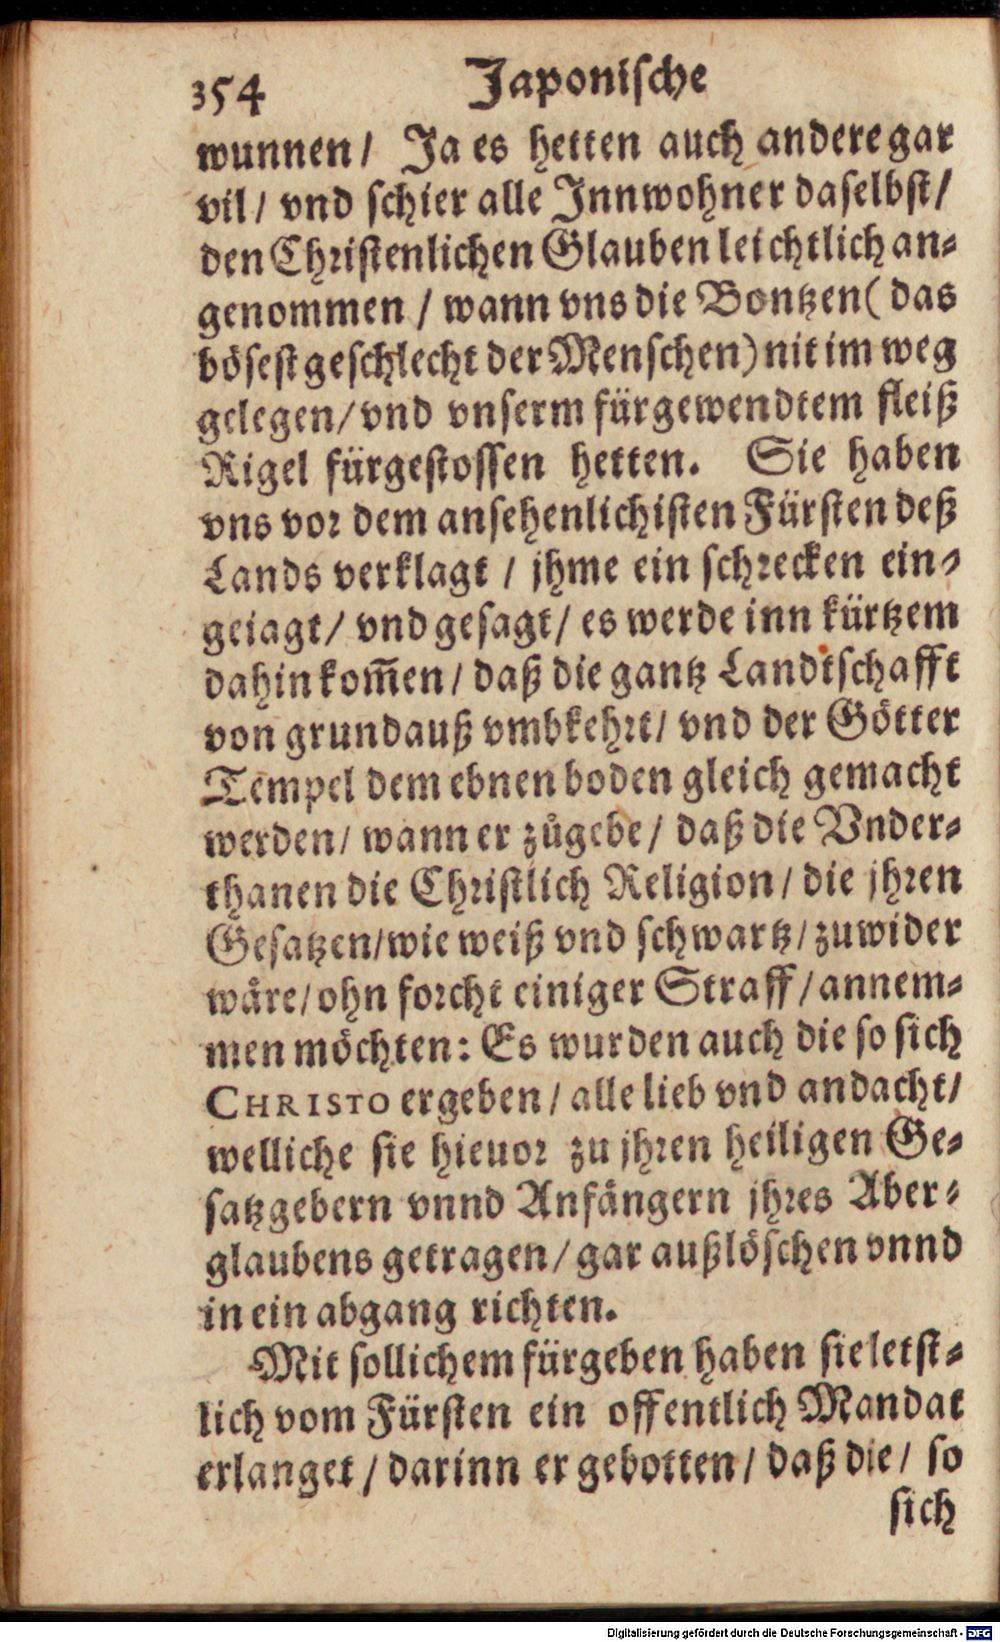 354 Japonische
wunnen/ Ja es hetten auch andere gar
vil/ vnd schier alle Innwohner daselbst/
den Christenlichen Glauben leichtlich an-
genommen / wann vns die Bontzen( das
bösest geschlecht der Menschen) nit im weg
gelegen/ vnd vnserm fürgewendtem fleiß
Rigel fürgestossen hetten. Sie haben
vns vor dem ansehenlichisten Fürsten deß
Lands verklagt / jhme ein schrecken ein-
geiagt/ vnd gesagt/ es werde inn kürtzem
dahin kom̃en/ daß die gantz Landtschafft
von grund auß vmbkehrt/ vnd der Götter
Tempel dem ebnen boden gleich gemacht
werden/ wann er zůgebe/ daß die Vnder-
thanen die Christlich Religion/ die jhren
Gesatzen/ wie weiß vnd schwartz/ zuwider
wäre/ ohn forcht einiger Straff/ annem-
men möchten: Es wurden auch die so sich
CHRISTO ergeben/ alle lieb vnd andacht/
welliche sie hieuor zu jhren heiligen Ge-
satzgebern vnnd Anfängern jhres Aber-
glaubens getragen/ gar außlöschen vnnd
in ein abgang richten.
Mit sollichem fürgeben haben sie letst-
lich vom Fürsten ein offentlich Mandat
erlanget/ darinn er gebotten/ daß die/ so
sich
Digitalisierung gefördert durch die Deutsche Forschungsgemeinschaft - DFG